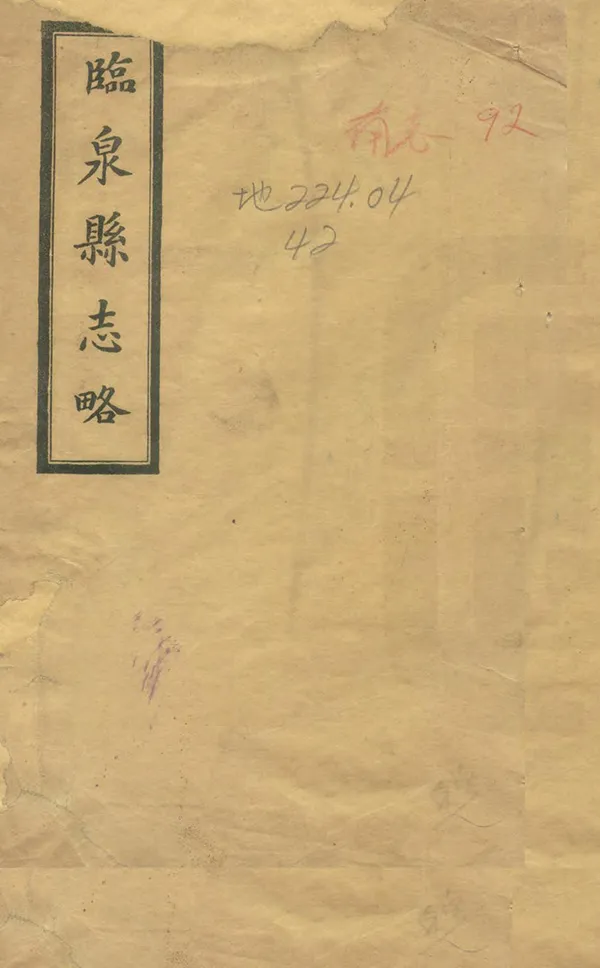 臨泉縣志略
南志 92
地224.04
42